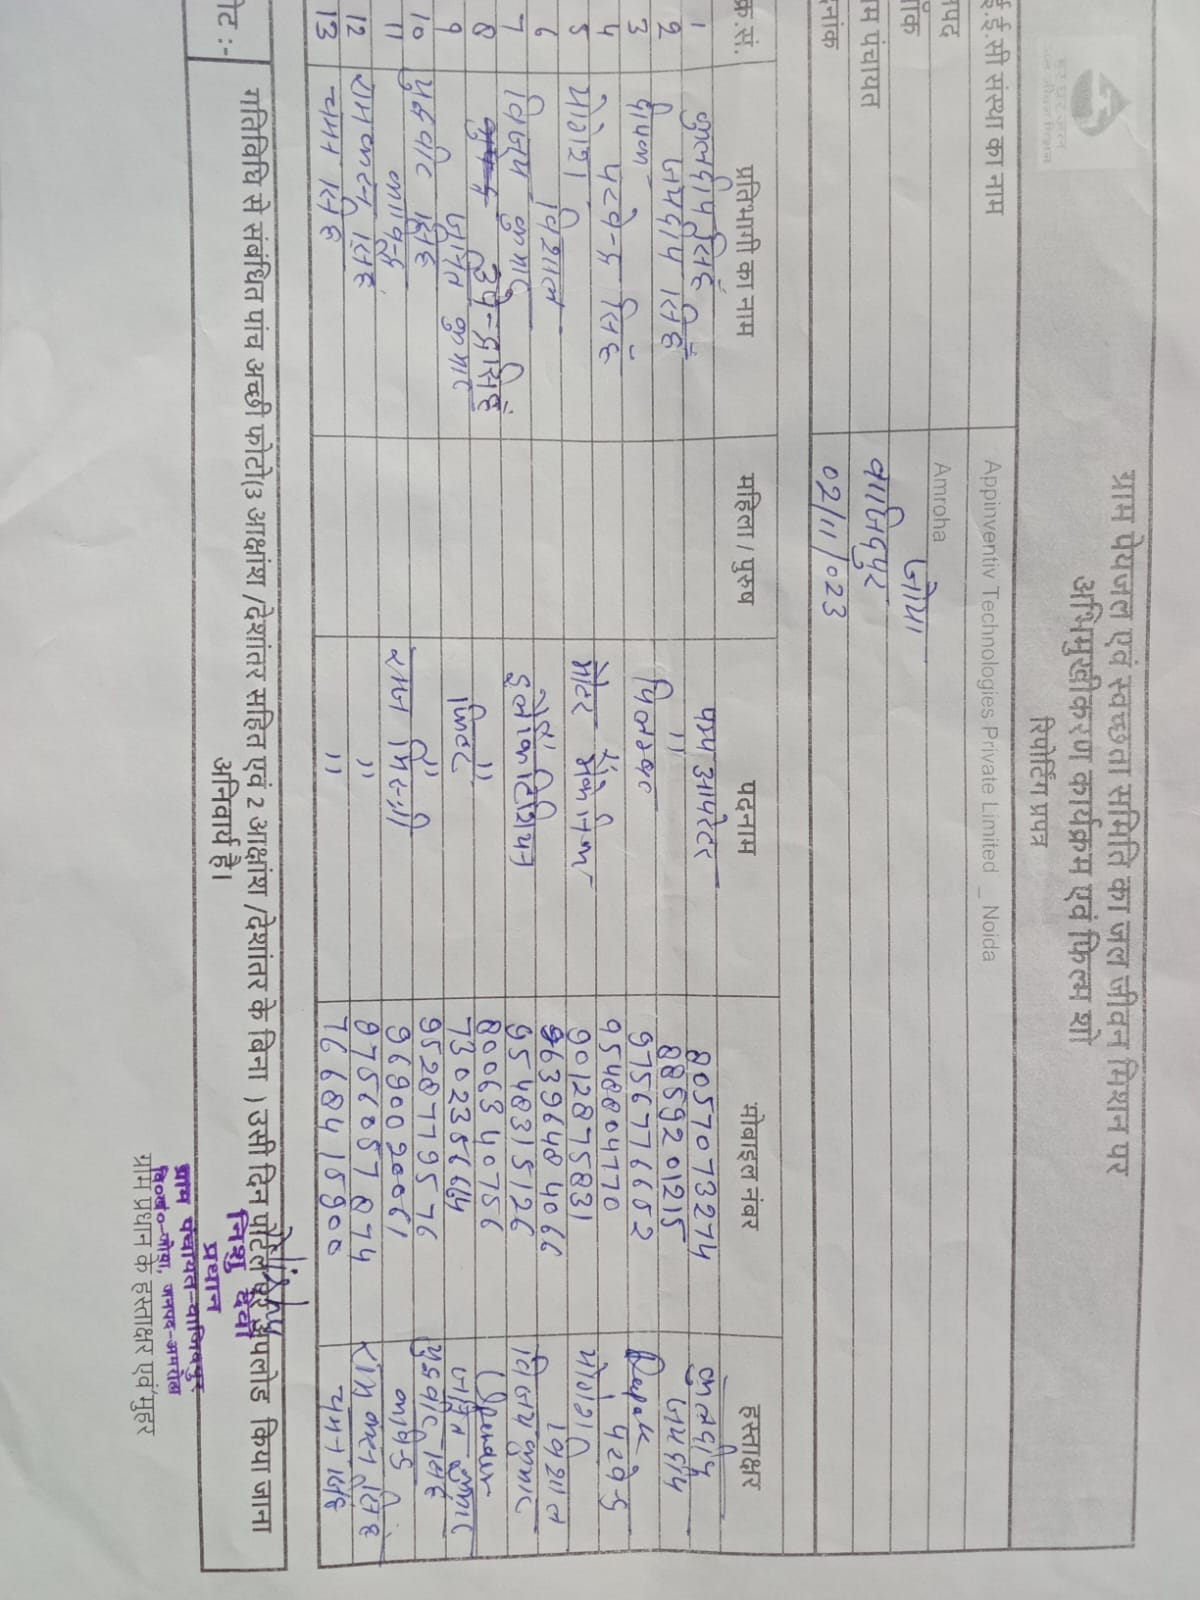 ग्राम पेयजल एवं स्वच्छता समिति का जल जीवन मिशन पर
अभिमुखीकरण कार्यक्रम एवं फिल्म शो
रिपोर्टिंग प्रपत्र
ई.ई.सी संस्था का नाम Appinventiv Technologies Private Limited _ Noida
नपद Amroha
जोया
म पंचायत वाजिदपुर
नांक 02/11/023
क्र.सं. प्रतिभागी का नाम महिला / पुरुष पदनाम मोबाइल नंबर हस्ताक्षर
1 कुलदीप सिंह पम्प आपरेटर 8057073274 कुलदीप
2 जयदीप सिंह " 8859201215 जयदीप
3 दीपक 9756776652 Deepak
4 पुष्पेन्द्र सिंह 9548804770
5 योगेश मोटर मैकेनिक 9012875831 योगेश
6 विशाल 96396484066 विशाल
7 विजय कुमार इलेक्ट्रीशियन 9548315126 विजय कुमार
8 उपेन्द्र सिंह " 8006340756 Upender
9 कुमार फिटर 7302356664 कुमार
10 सिंह " 9528779576
11 राज मिस्त्री 9690020061
12 रामकरन सिंह " 9756857874 रामकरन सिंह
13 चमन सिंह " 7668415900 चमन सिंह
ोट :- गतिविधि से संबंधित पांच अच्छी फोटो(3 आक्षांश /देशांतर सहित एवं 2 आक्षांश /देशांतर के बिना ) उसी दिन पोर्टल पर अपलोड किया जाना
अनिवार्य है।
निशु देवी
प्रधान
ग्राम पंचायत-वाजिदपुर
वि०ख०-जोया, जनपद-अमरोहा
ग्राम प्रधान के हस्ताक्षर एवं मुहर